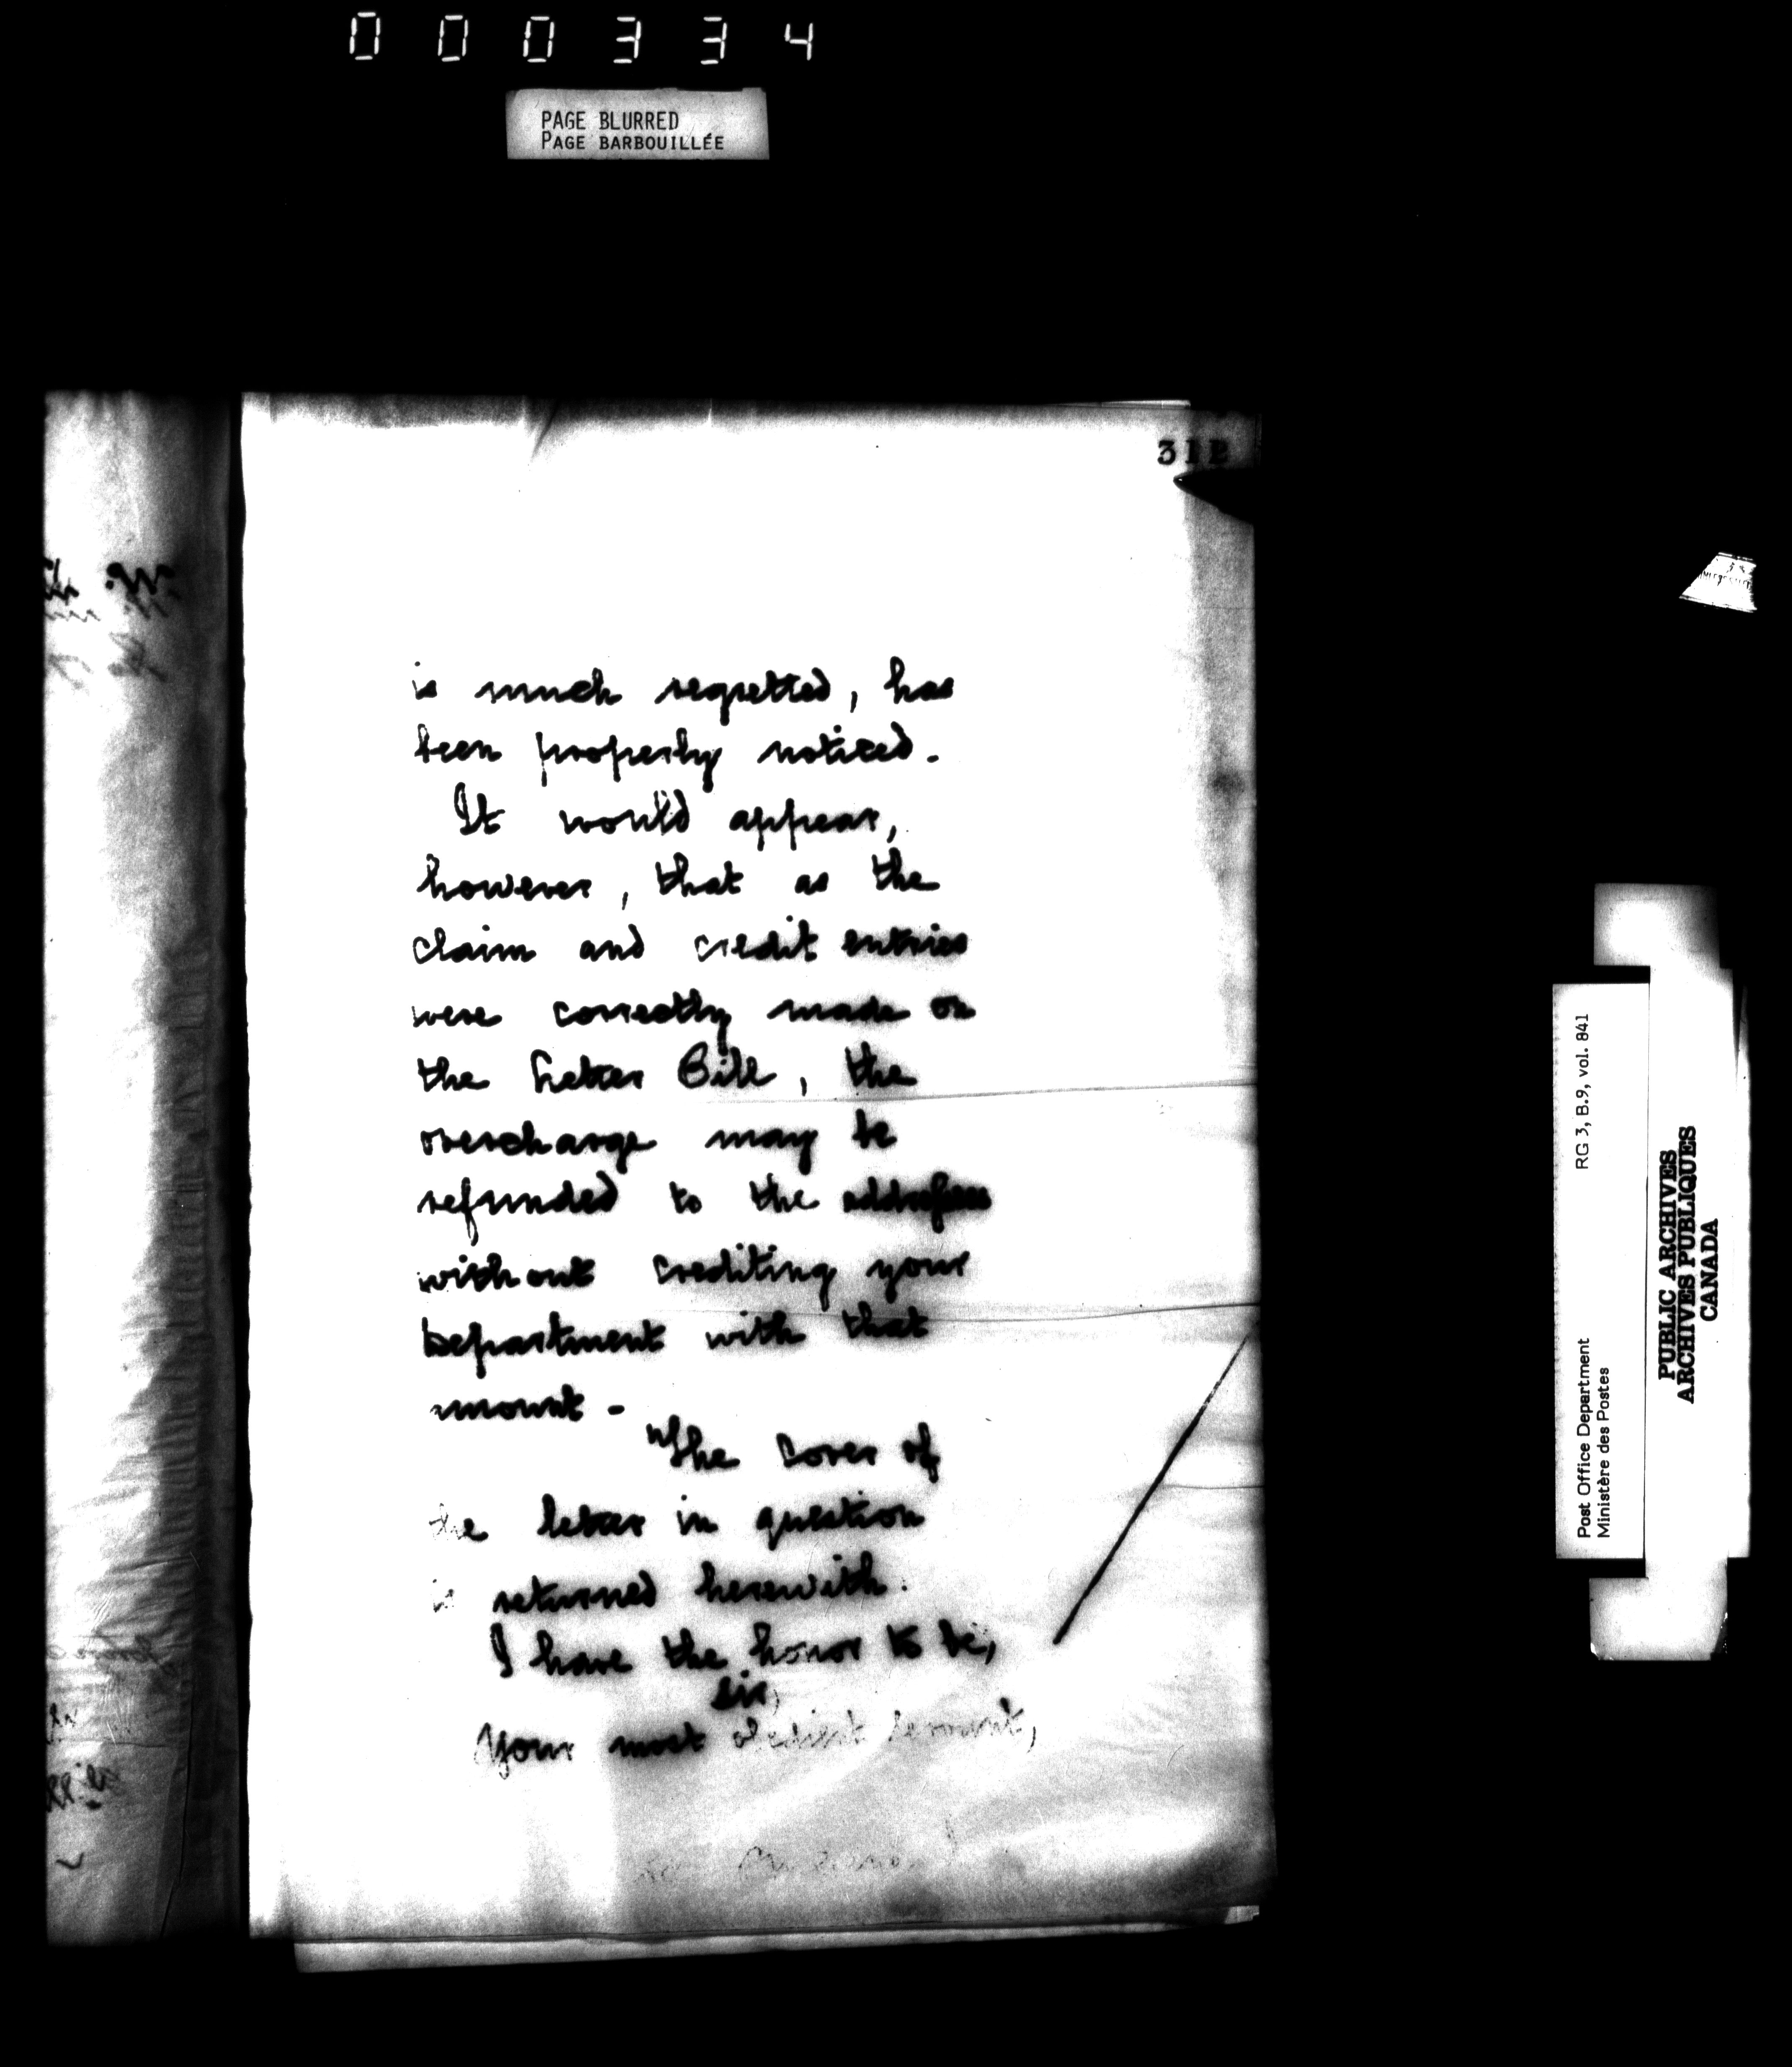 000334
PAGE BLURRED
PAGE BARBOUILLÉE
312
is much regretted, has
been properly noticed.
It would appear,
however, that as the
claim and credit entries
were correctly made on
the Letter Bill, the
overcharge may be
refunded to the addressee
without crediting your
Department with that
amount -
The cover of
the letter in question
is returned herewith.
I have the honor to be,
Sir,
Your most obedient servant,
RG 3, B.9, vol. 841
Post Office Department
Ministère des Postes
PUBLIC ARCHIVES
ARCHIVES PUBLIQUES
CANADA